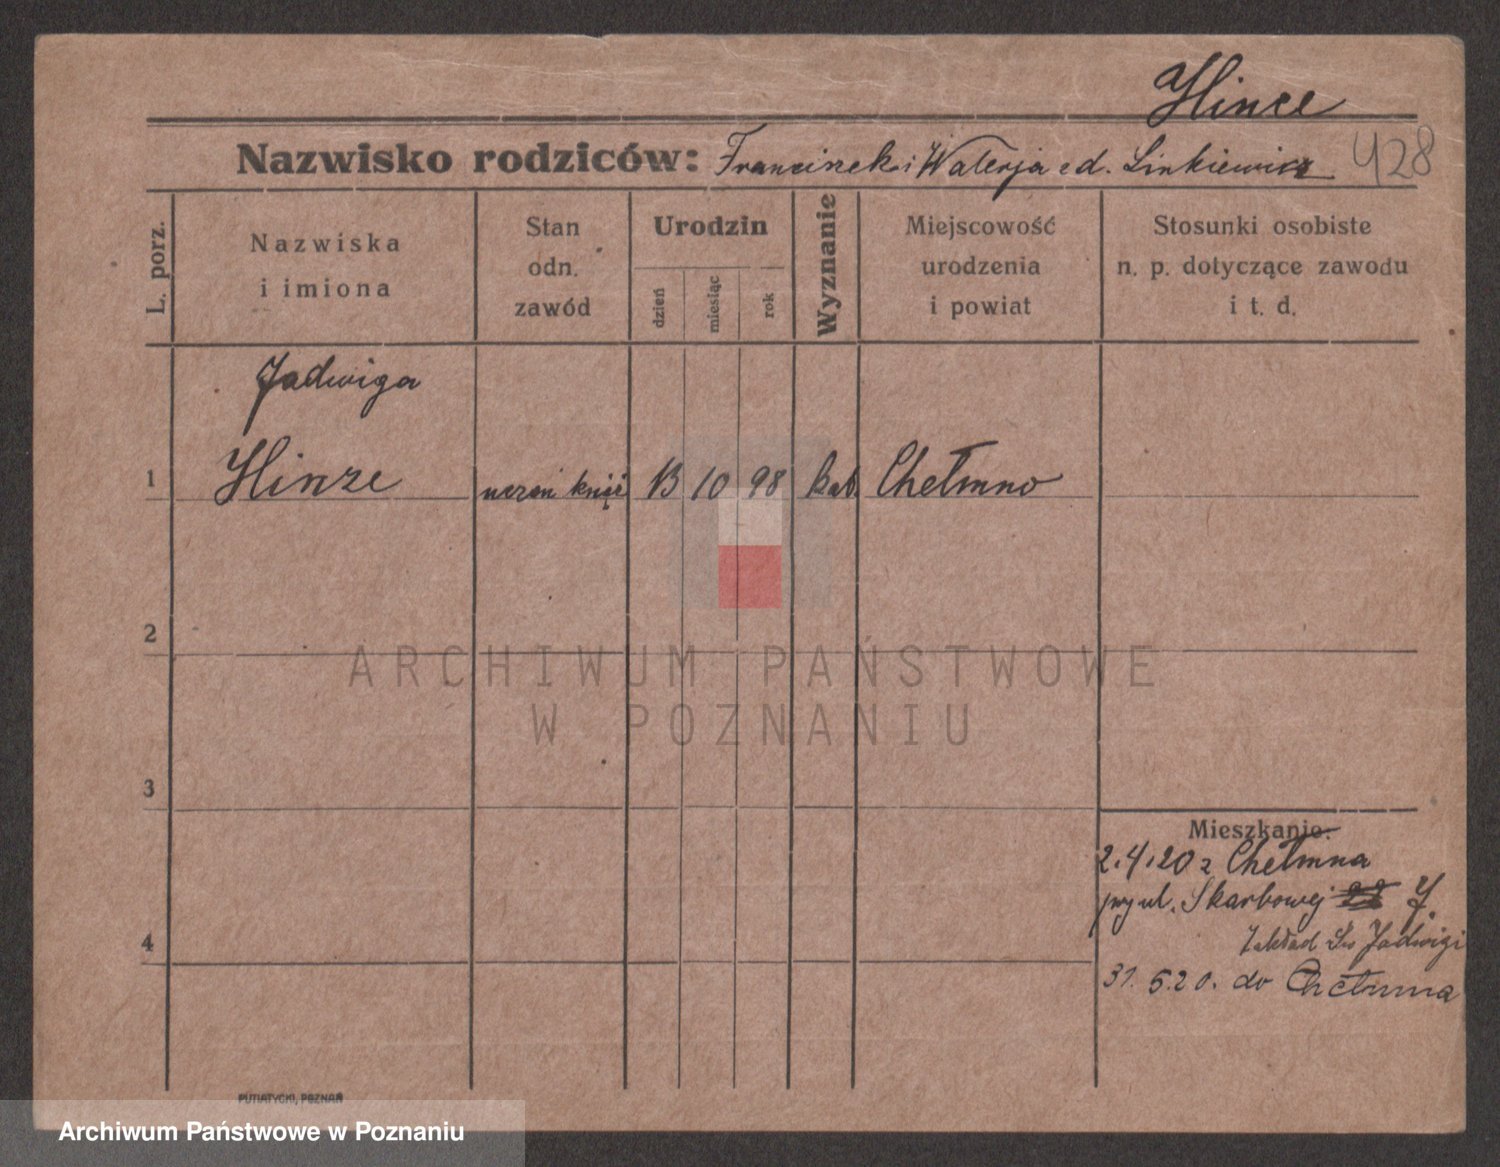 Hince
Nazwisko rodziców: Franciszek i Walerja e d. Linkiewicz 428
L. porz.
Nazwiska
i imiona
Stan
odn.
zawód
Urodzin
dzień
miesiąc
rok
Wyznanie
Miejscowość
urodzenia
i powiat
Stosunki osobiste
n. p. dotyczące zawodu
i t. d.
Jadwiga
1 Hinze 13 10 98 kat. Chełmno
2
ARCHIWUM PAŃSTWOWE
W POZNANIU
3
Mieszkanie:
2.4.20 z Chełmna
przy ul. Skarbowej 7.
Zakład Św Jadwigi
4
31. 5.20. do Chełmna
PUTIATYCKI, POZNAŃ
Archiwum Państwowe w Poznaniu